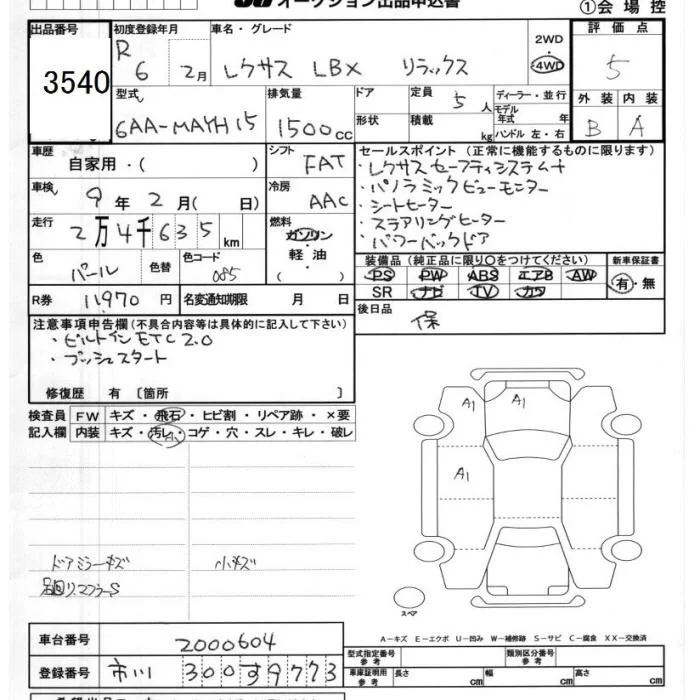 オークション出品申込書
①会場控
出品番号
3540
初度登録年月
R 6 2月
車名・グレード
レクサス LBX リラックス
2WD
4WD
評価点
5
型式
6AA-MAYH15
排気量
1500cc
ドア
形状
定員 5人
積載 kg
ディーラー・並行
モデル年式 年
ハンドル 左・右
外装 内装
B A
車歴
自家用・( )
シフト
FAT
セールスポイント (正常に機能するものに限ります)
・レクサスセーフティシステム+
・パノラミックビューモニター
・シートヒーター
・ステアリングヒーター
・パワーバックドア
車検 9年 2月( 日)
冷房
AAC
走行
2万4千635km
燃料
ガソリン
軽油
・( )
色
パール
色替
色コード
085
装備品 (純正品に限り○をつけてください)
PS PW ABS エアB AW
SR ナビ TV カワ
新車保証書
有・無
R券 11970円
名変通知期限 月 日
後日品
保
注意事項申告欄(不具合内容等は具体的に記入して下さい)
・ビルトインETC2.0
・プッシュスタート
修復歴 有〔箇所 〕
検査員
記入欄
FW キズ・飛石・ヒビ割・リペア跡・×要
内装 キズ・汚レ・コゲ・穴・スレ・キレ・破レ
小
A1
A1
A1
ドアミラーキズ 小キズ
足回リマフラーS
スペア
A−キズ E−エクボ U−凹み W−補修跡 S−サビ C−腐食 XX−交換済
車台番号 2000604
型式指定番号 参考
類別区分番号 参考
登録番号 市川 300す9773
車庫証明用 参考
長さ cm 幅 cm 高さ cm